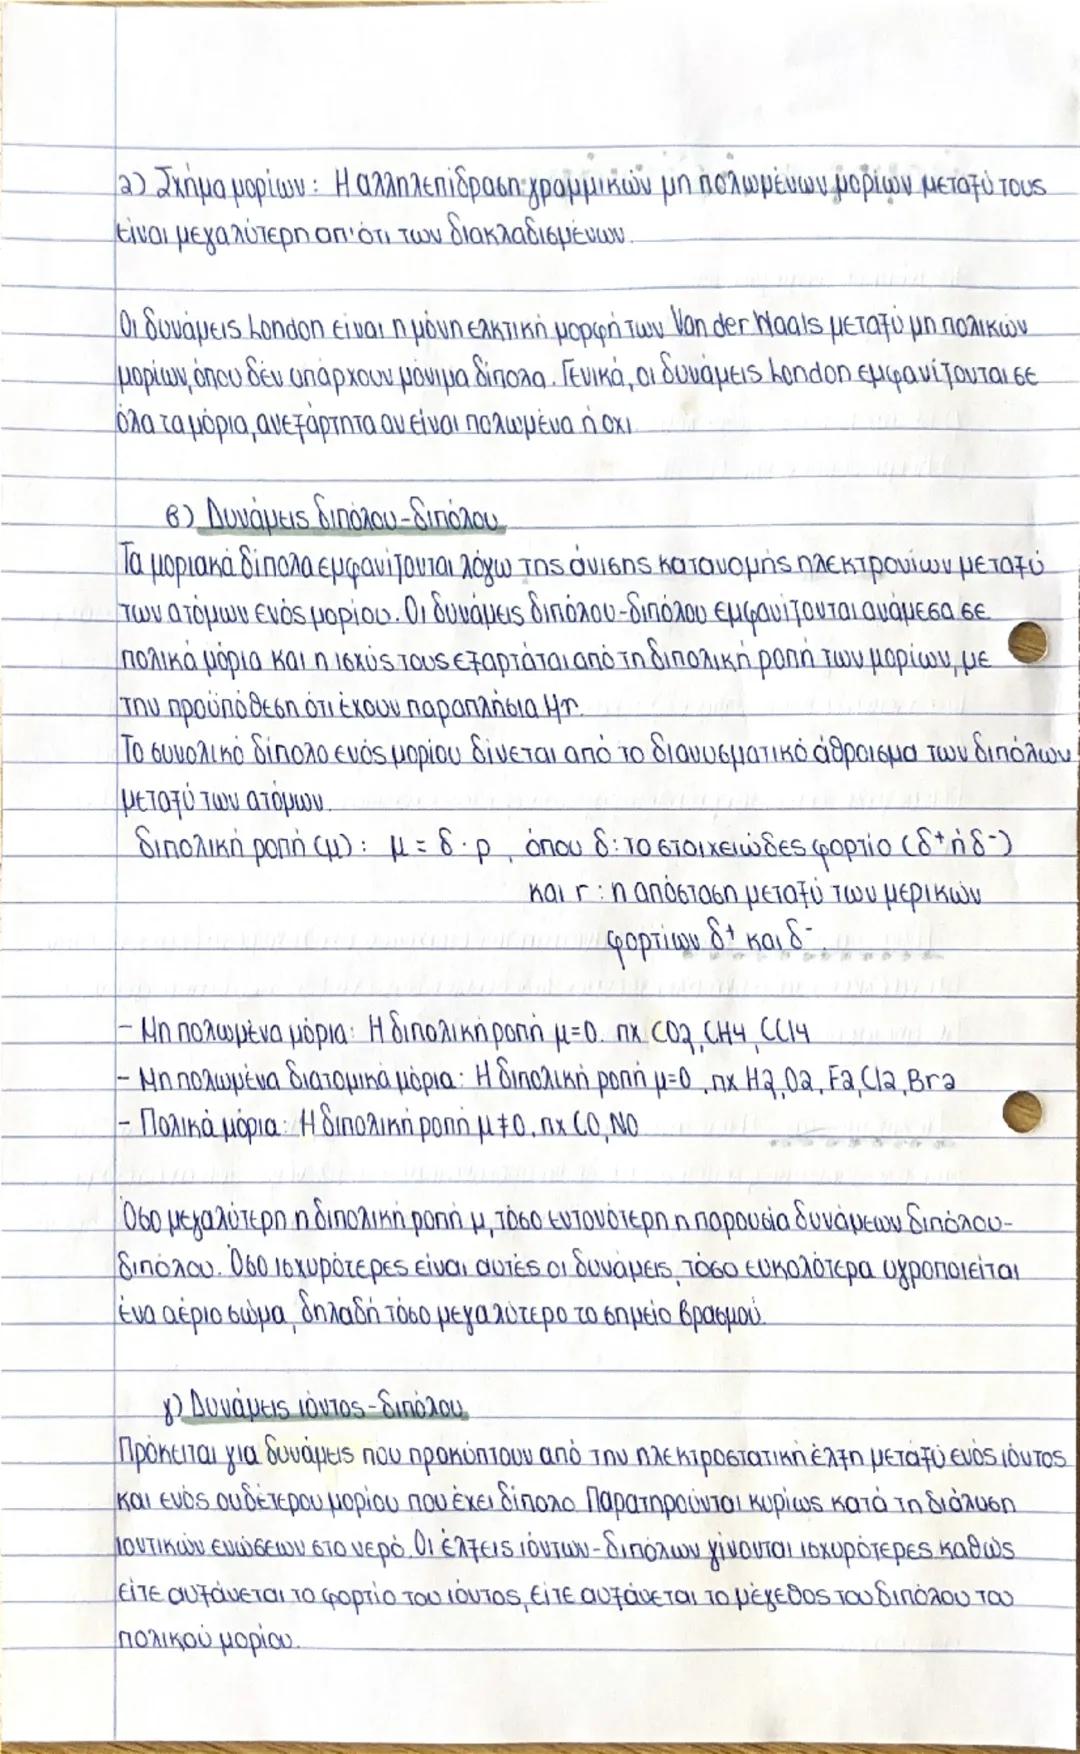 2) Σχήμα μορίων: Η αλληλεπίδραση γραμμικών μη πολωμένων μορίων μεταξύ τους
είναι μεγαλύτερη απ'ότι των διακλαδισμένων.
Οι δυνάμεις London είναι η μόνη ελκτική μορφή των Van der Waals μεταξύ μη πολικών
μορίων, όπου δεν υπάρχουν μόνιμα δίπολα. Γενικά, οι δυνάμεις London εμφανίζονται σε
όλα τα μόρια, ανεξάρτητα αν είναι πολωμένα ή όχι.
β) Δυνάμεις διπόλου-διπόλου
Τα μοριακά δίπολα εμφανίζονται λόγω της άνισης κατανομής ηλεκτρονίων μεταξύ
των ατόμων ενός μορίου. Οι δυνάμεις διπόλου-διπόλου εμφανίζονται ανάμεσα σε
πολικά μόρια και η ισχύς τους εξαρτάται από τη διπολική ροπή των μορίων, με
την προϋπόθεση ότι έχουν παραπλήσια Mr.
Το συνολικό δίπολο ενός μορίου δίνεται από το διανυσματικό άθροισμα των διπόλων
μεταξύ των ατόμων.
διπολική ροπή (μ): μ = δ · ρ, όπου δ: το στοιχειώδες φορτίο (δ⁺ ή δ⁻)
και r: η απόσταση μεταξύ των μερικών
φορτίων δ⁺ και δ⁻.
- Μη πολωμένα μόρια: Η διπολική ροπή μ=0. πχ CO2, CH4, CCl4
- Μη πολωμένα διατομικά μόρια: Η διπολική ροπή μ=0, πχ H2, O2, F2, Cl2, Br2
- Πολικά μόρια: Η διπολική ροπή μ≠0. πχ CO, NO
Όσο μεγαλύτερη η διπολική ροπή μ, τόσο εντονότερη η παρουσία δυνάμεων διπόλου-
διπόλου. Όσο ισχυρότερες είναι αυτές οι δυνάμεις, τόσο ευκολότερα υγροποιείται
ένα αέριο σώμα, δηλαδή τόσο μεγαλύτερο το σημείο βρασμού.
γ) Δυνάμεις ιόντος-διπόλου
Πρόκειται για δυνάμεις που προκύπτουν από την ηλεκτροστατική έλξη μεταξύ ενός ιόντος
και ενός ουδέτερου μορίου που έχει δίπολο. Παρατηρούνται κυρίως κατά τη διάλυση
ιοντικών ενώσεων στο νερό. Οι έλξεις ιόντων-διπόλων γίνονται ισχυρότερες καθώς
είτε αυξάνεται το φορτίο του ιόντος, είτε αυξάνεται το μέγεθος του διπόλου του
πολικού μορίου.